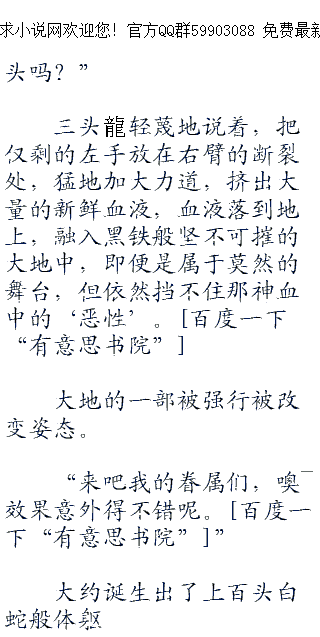 求小说网欢迎您！官方QQ群59903088 免费最新
头吗？”
三头龍轻蔑地说着，把
仅剩的左手放在右臂的断裂
处，猛地加大力道，挤出大
量的新鲜血液，血液落到地
上，融入黑铁般坚不可摧的
大地中，即便是属于莫然的
舞台，但依然挡不住那神血
中的‘恶性’。[百度一下
“有意思书院”]
大地的一部被强行被改
变姿态。
“来吧我的眷属们，噢
效果意外得不错呢。[百度一
下“有意思书院”]”
大约诞生出了上百头白
蛇般体躯